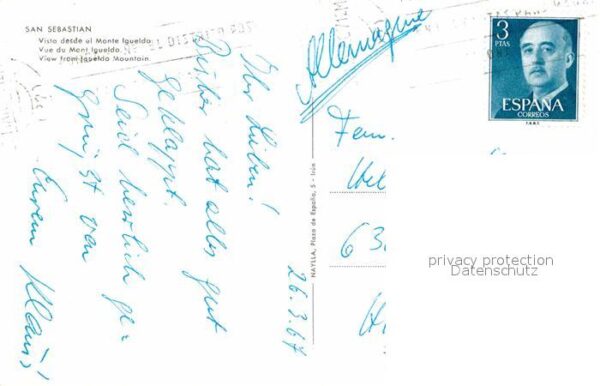 SAN SEBASTIAN
Vista desde el Monte Igueldo.
Vue du Mont Igueldo.
View from Igueldo Mountain.
Ihr Lieben!
Bisher hat alles gut
geklappt.
Seid herzlich ge-
grüßt von
Eurem Klaus!
26.3.67
NAYLLA, Plaza de España, 5 - Irún
Allemagne
Fam.
63
3
PTAS
ESPAÑA
CORREOS
privacy protection
Datenschutz